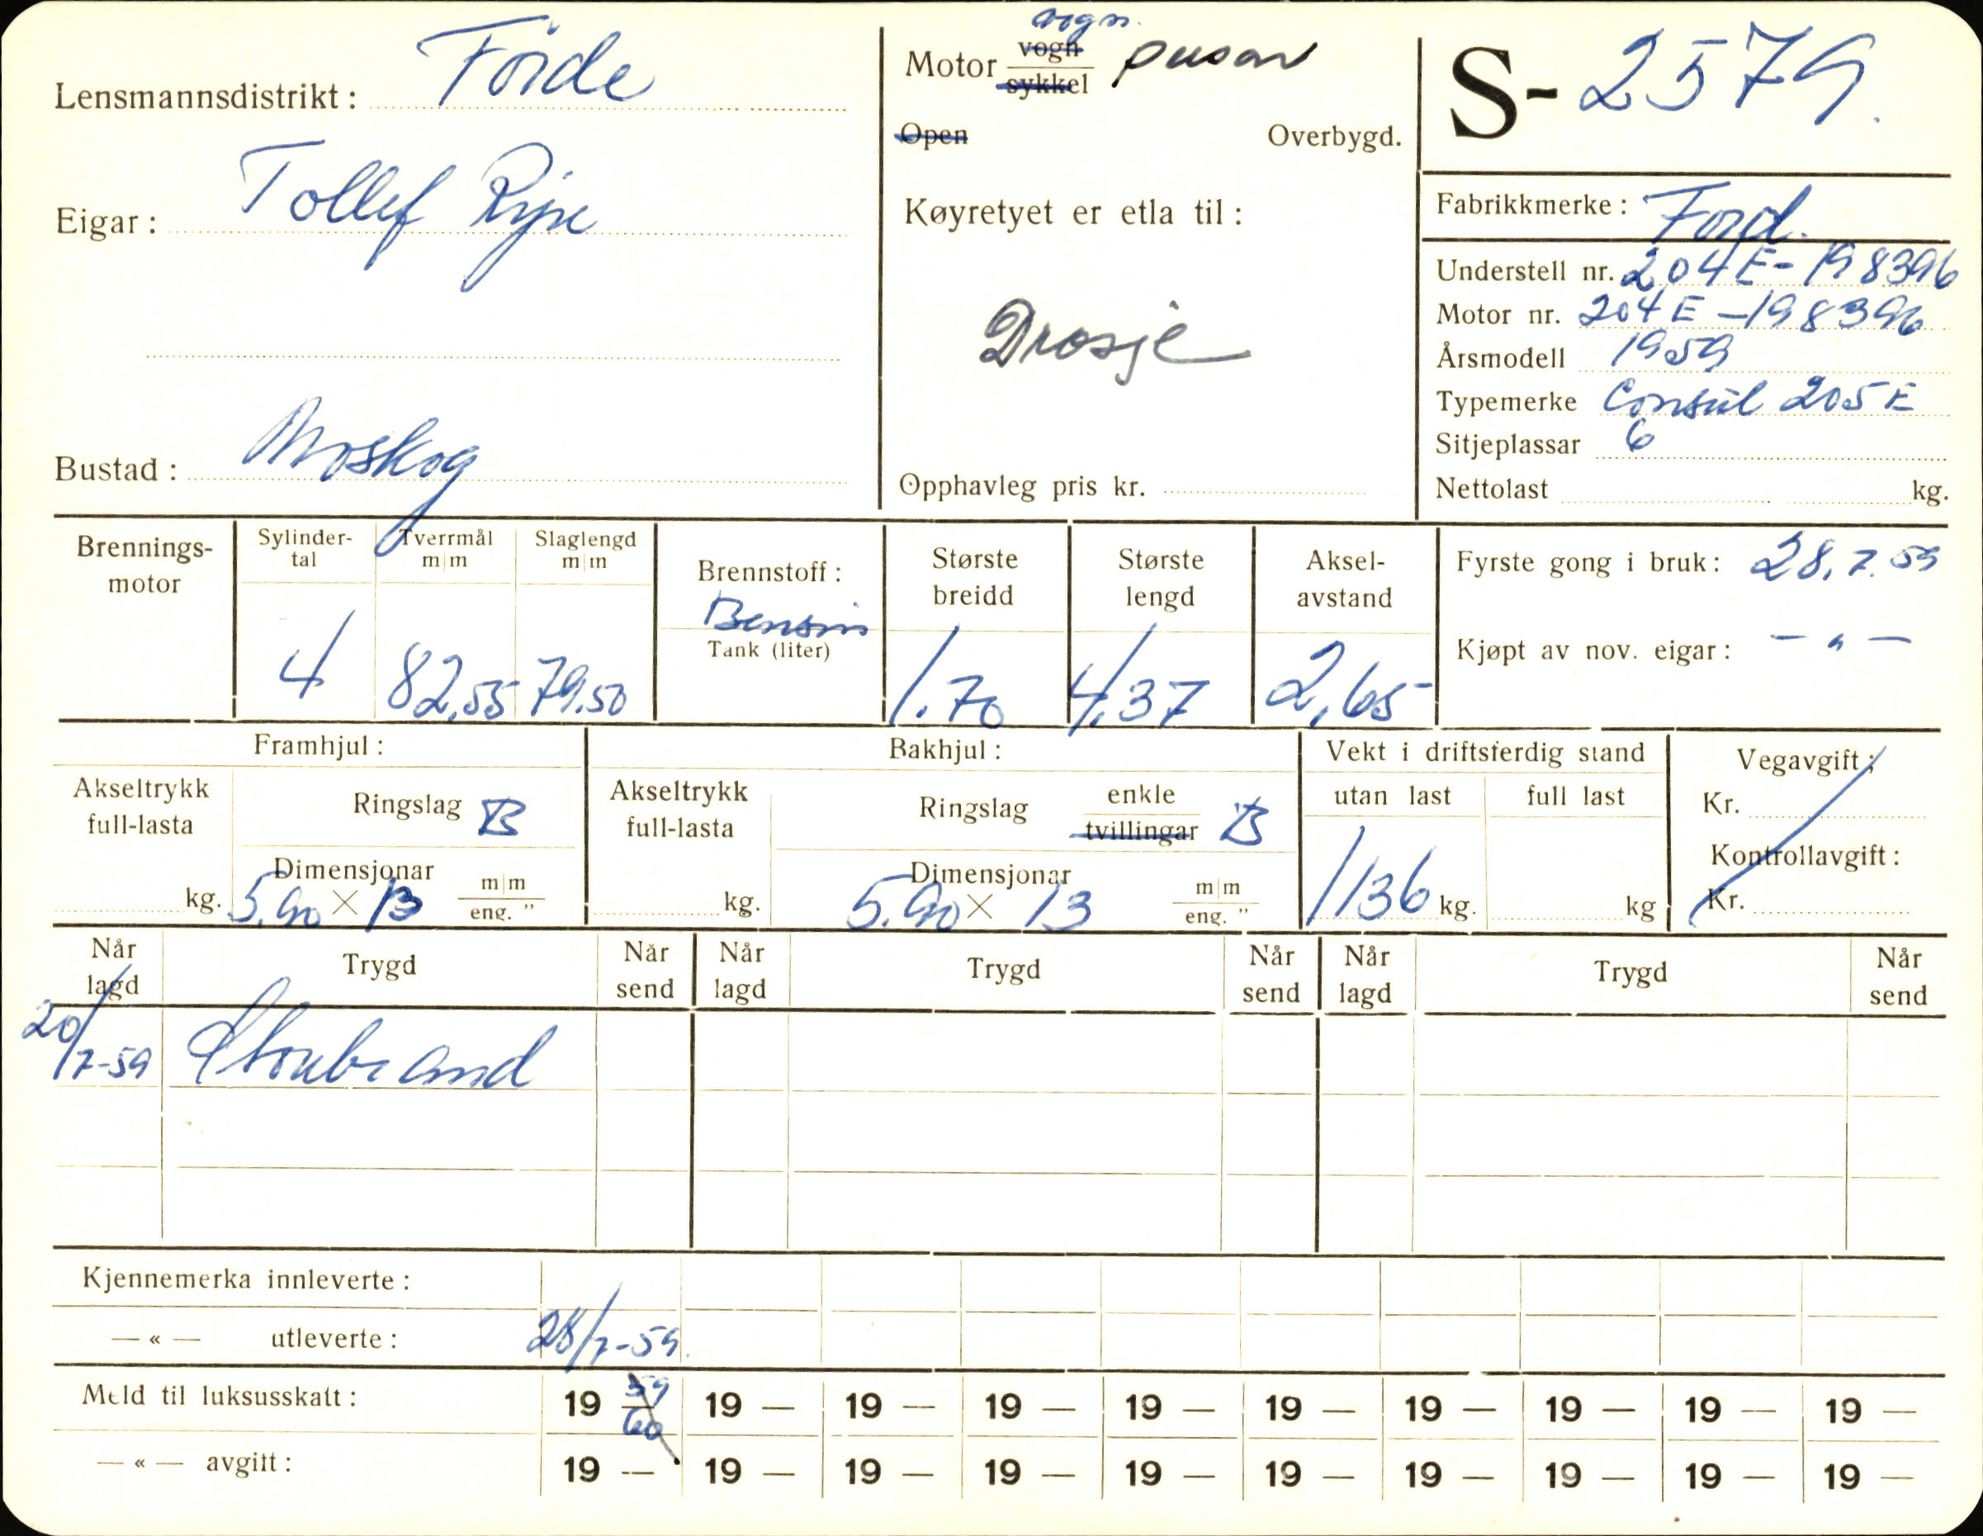 Lensmannsdistrikt: Förde
Eigar: Tollef Rype
Bustad: Moskog
Motor vogn sykkel vogn. person
Open Overbygd.
Køyretyet er etla til:
Drosje
Opphavleg pris kr.
S- 2579.
Fabrikkmerke: Ford.
Understell nr. 204E-198396
Motor nr. 204E-198396
Årsmodell 1959
Typemerke Consul 205E
Sitjeplassar 6
Nettolast kg.
Brennings-
motor
Sylinder-
tal
4
Tverrmål
m|m
82,55
Slaglengd
m|m
79.50
Brennstoff:
Bensin
Tank (liter)
Største
breidd
1.70
Største
lengd
4,37
Aksel-
avstand
2,65
Fyrste gong i bruk: 28.7.59
Kjøpt av nov. eigar: — „ —
Framhjul:
Akseltrykk
full-lasta
kg.
Ringslag B
Dimensjonar
5.90 × 13 m|m eng. "
Bakhjul:
Akseltrykk
full-lasta
kg.
Ringslag enkle tvillingar B
Dimensjonar
5.90 × 13 m|m eng. "
Vekt i driftsferdig stand
utan last full last
1136 kg. kg
Vegavgift:
Kr.
Kontrollavgift:
Kr.
Når lagd Trygd Når send Når lagd Trygd Når send Når lagd Trygd Når send
20/7-59 Storebrand
Kjennemerka innleverte:
— « — utleverte: 28/7-59.
Meld til luksusskatt: 19 59 60 19 — 19 — 19 — 19 — 19 — 19 — 19 — 19 — 19 —
— « — avgift: 19 — 19 — 19 — 19 — 19 — 19 — 19 — 19 — 19 — 19 —